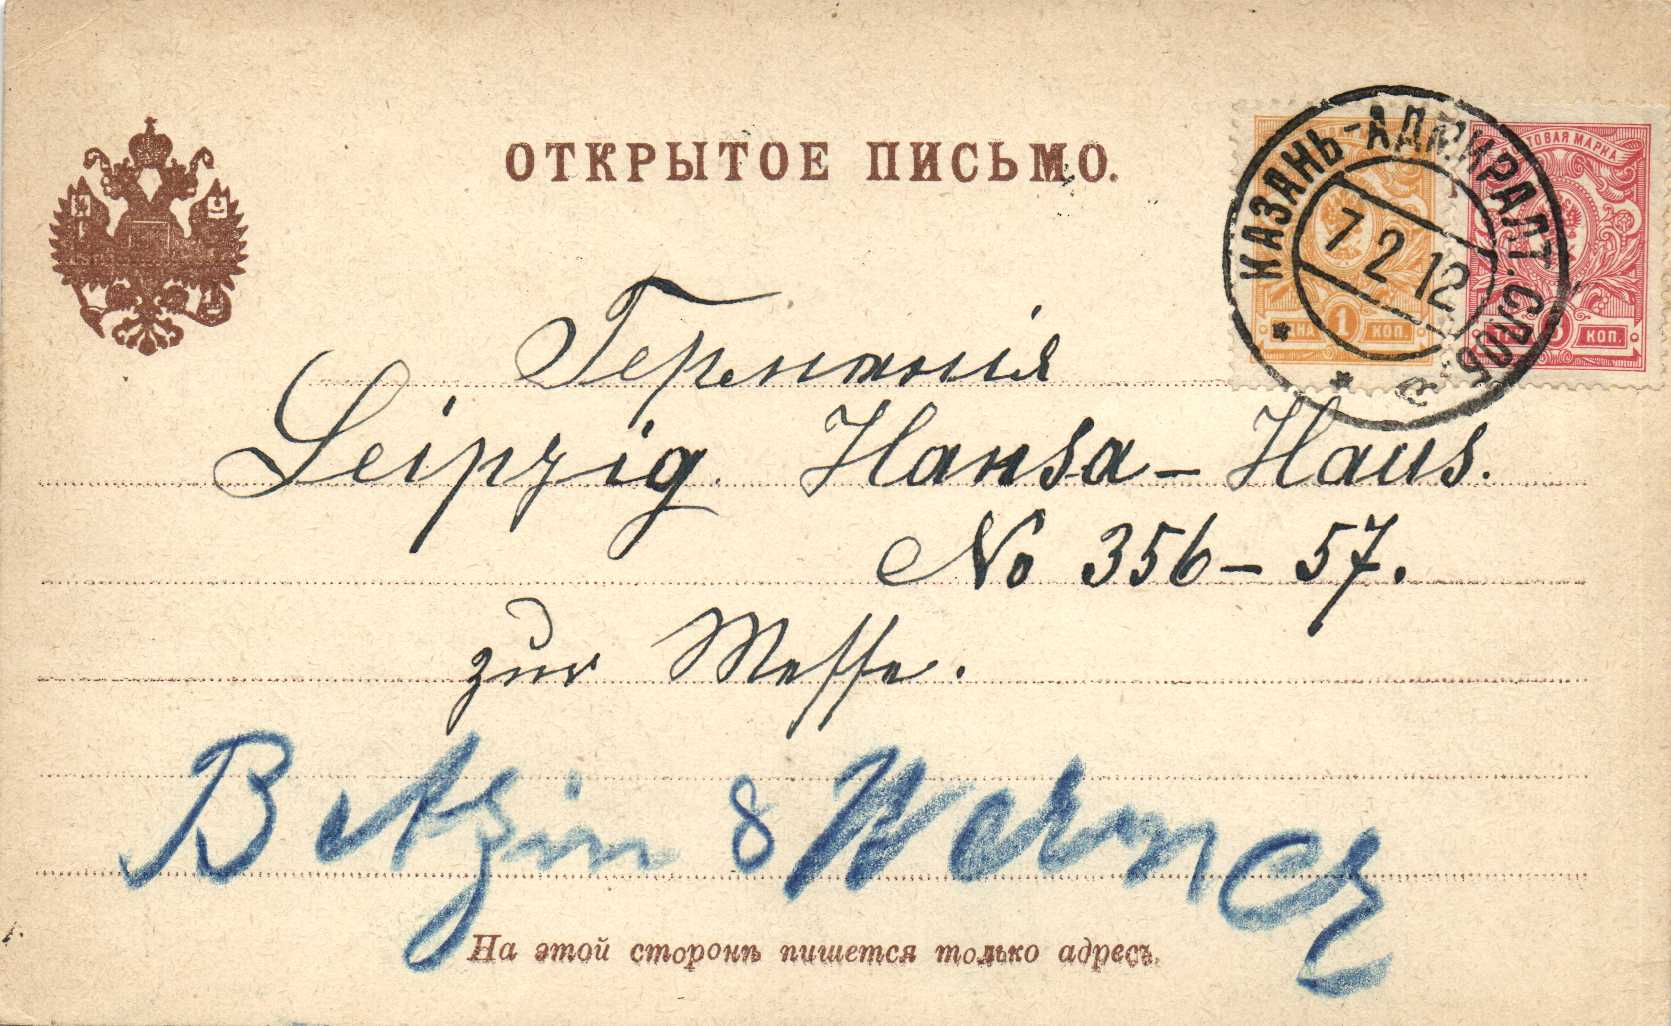 ОТКРЫТОЕ ПИСЬМО.
ТОВАЯ МАРКА
КАЗАНЬ-АДМИРАЛТ. СЛОБ.
7 2 12
1 КОП.
3 КОП.
Германія
Leipzig. Hansa-Haus.
No 356-57.
zur Messe.
Betzin & Werner
На этой сторонѣ пишется только адресъ.